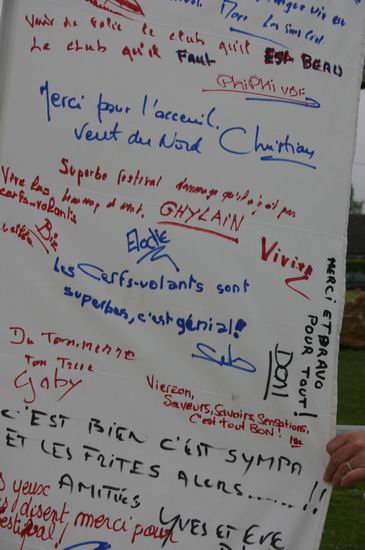 vive en
Marc
le club qu'il
Le club qu'il FAUT EST BEAU
PHIPHI VDF
Merci pour l'acceuil.
Vent du Nord Christian
Superbe festival dommage qu'il n'y ait pas
Vive les
cerfs-volants
beaucoup de vent. GHYLAIN
Biz
Elodie
Vivien
Les Cerfs-volants sont
superbes, c'est génial!
Seb
MERCI ET BRAVO
POUR TOUT!
DON
Du
Ton
Gaby
Vierzon,
Saveurs, Savoirs, Sensations,
C'est tout BON!
C'EST BIEN C'EST SYMPA
ET LES FRITES ALORS.......!!
s yeux AMITIÉS YVES ET EVE
disent, merci pour
estival!